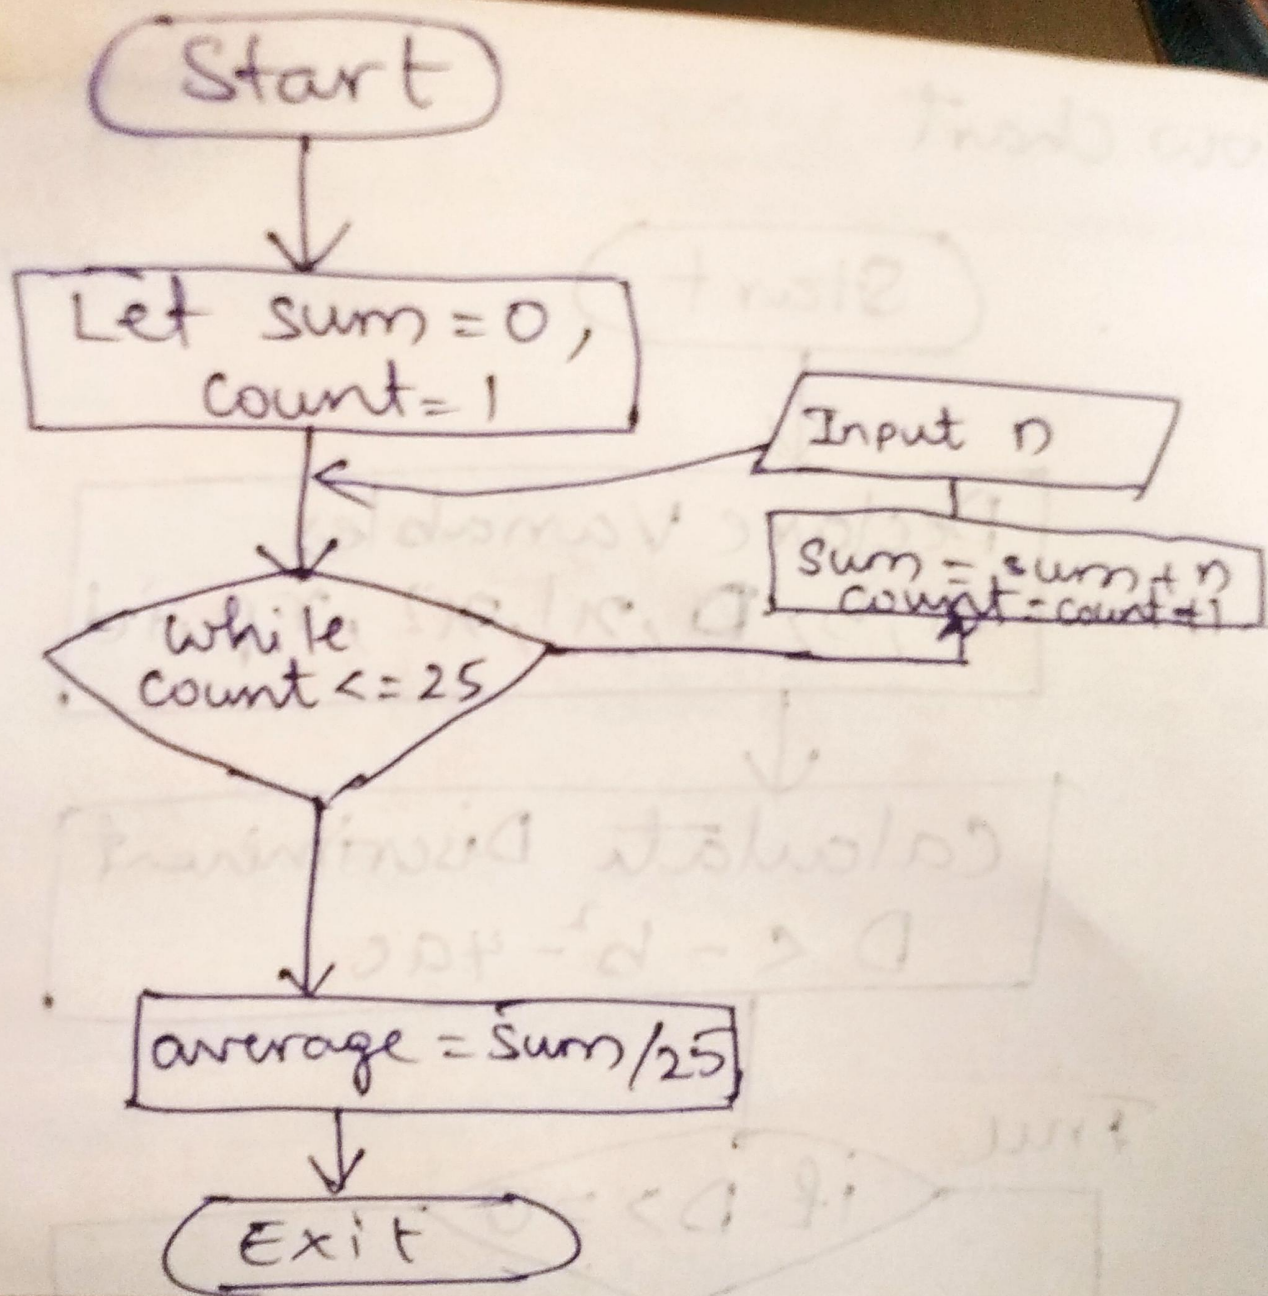 Start
Let sum = 0,
count = 1
Input n
sum = sum + n
count = count + 1
while
count <= 25
average = sum/25
Exit